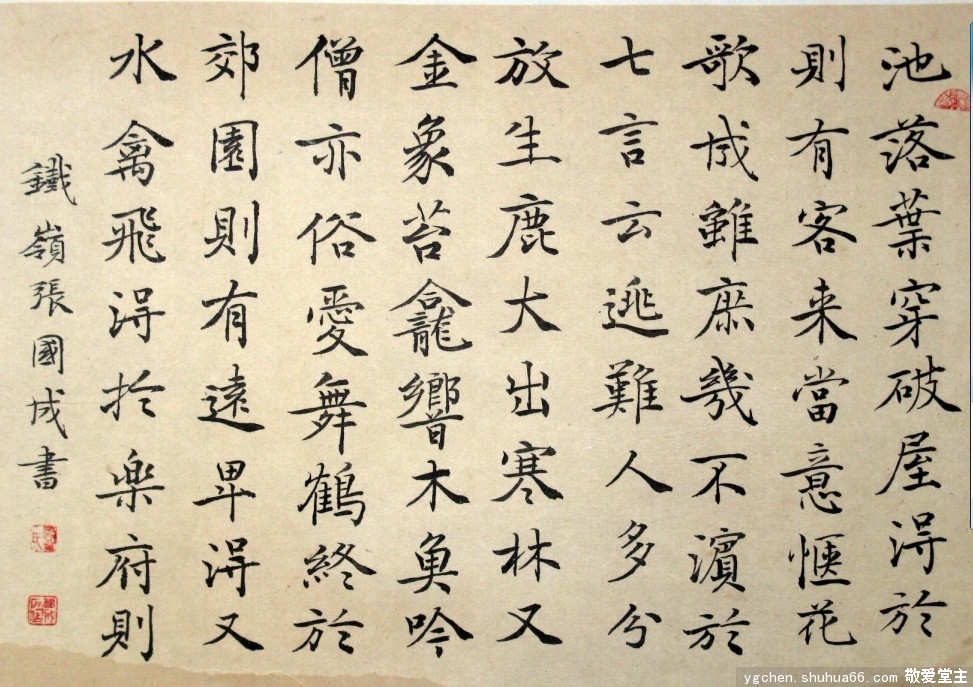 池落葉穿破屋得於
則有客来當意愜花
歌成雖庶幾不濱於
七言云逃難人多分
放生鹿大出寒林又
金象苔龕響木魚吟
僧亦俗愛舞鶴終於
郊園則有遠卑得又
水禽飛得於樂府則
鐵嶺張國成書
ygchen.shuhua66.com 敬爱堂主